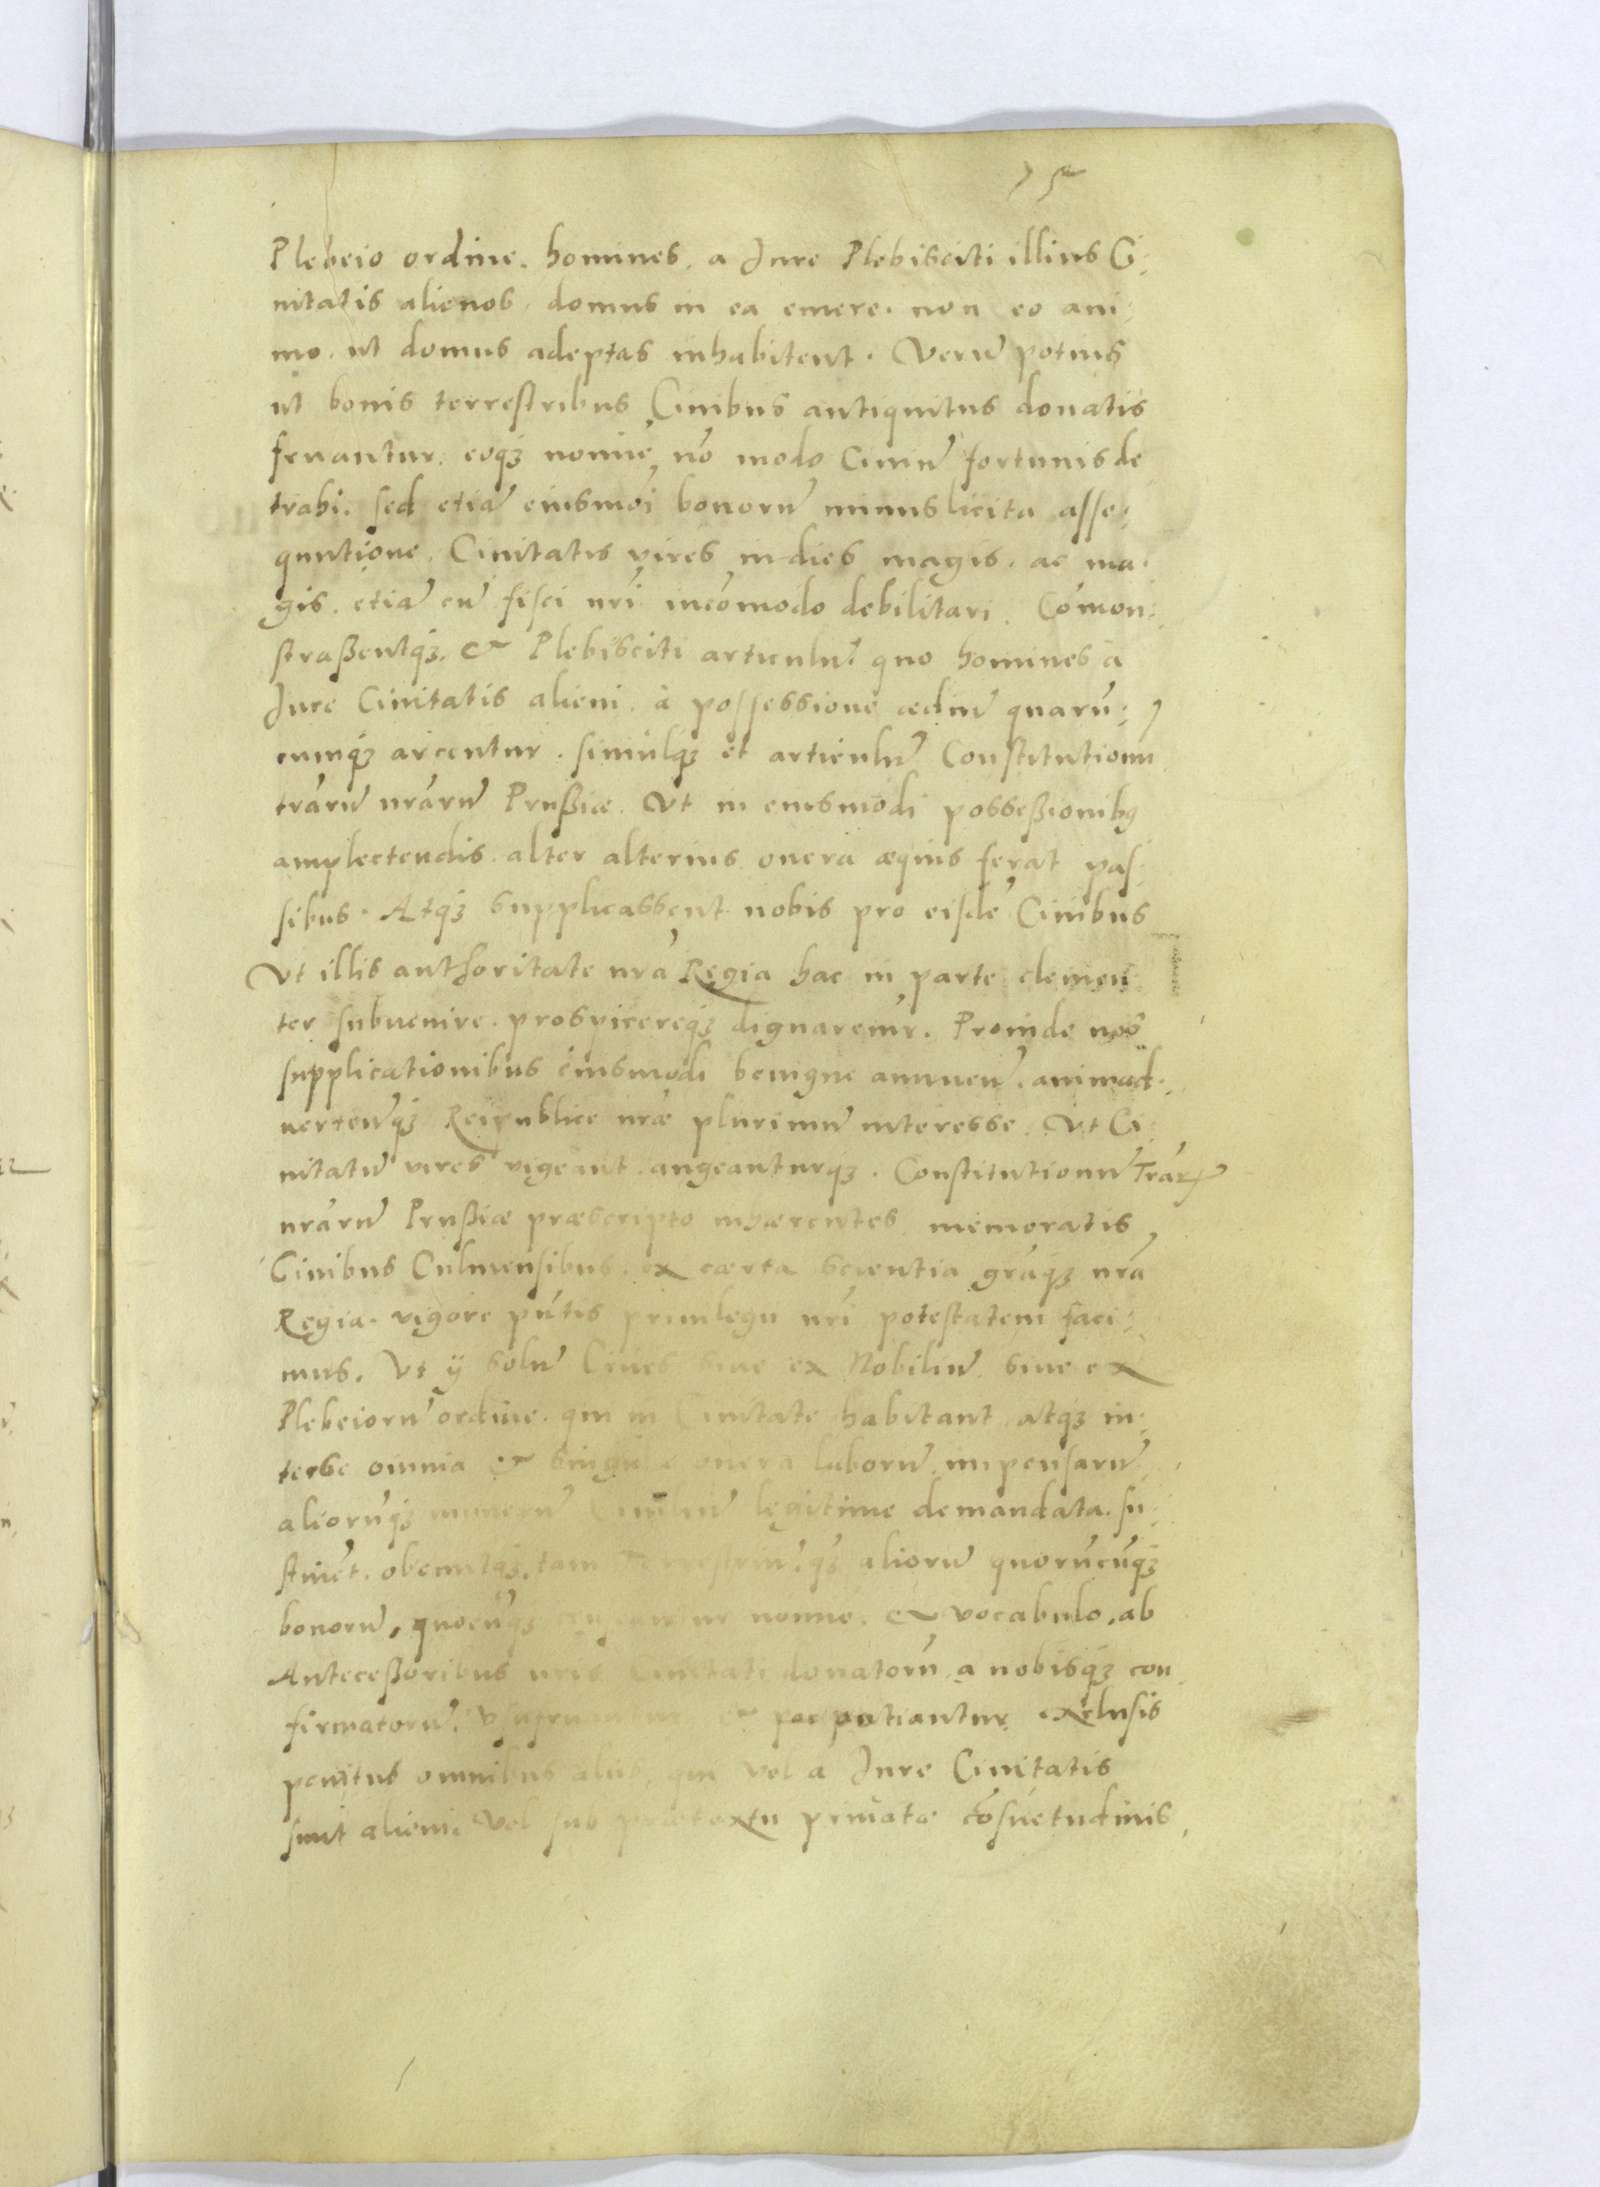 75
Plebeio ordine. homines. a Jure Plebisciti illius Ci:
uitatis alienos. domus in ea emere. non eo ani:
mo. ut domus adeptas inhabitent. Verũ potius
ut bonis terrestribus Ciuibus antiquitus donatis
fruantur. eoqꝫ nomiẽ nõ modo Ciuiũ fortunis de
trahi. sed etiã eiusmoi bonorũ minus licita asse:
quutione. Ciuitatis vires in dies magis. ac ma:
gis. etiã cũ fisci nri incõmodo debilitari. Cõmon:
straßentqꝫ. & Plebisciti articulũ quo homines à
Jure Ciuitatis alieni. à possessione ædiũ quarũ:
cumqꝫ arcentur. simulqꝫ et articulũ Constitutionũ
trãrũ nrãrũ Prußiæ. Vt in eiusmodi posseßionibꝰ
amplectendis. alter alterius onera æquis ferat pas:
sibus. Atqꝫ supplicassent nobis pro eisdẽ Ciuibus
Vt illis authoritate nrã Regia hac in parte clemen
ter subuenire. prospicereqꝫ dignaremur. Proinde nos
supplicationibus eiusmodi benigne annuen̄. animad:
uerten̄qꝫ Reipublice nræ plurimũ interesse. Vt Ci:
uitatũ vires vigeant. augeanturqꝫ. Constitutionũ Trarꝝ
nrãrũ Prußiæ præscripto inhærentes memoratis
Ciuibus Culmensibus. ex cærta scientia grãqꝫ nrã
Regia. vigore pñtis priuilegii nri potestatem faci:
mus. Vt ij solũ Ciues siue ex Nobiliũ siue ex
Plebeiorũ ordine. qui in Ciuitate habitant atqꝫ in:
terse omnia & singula onera laborũ. impensarũ
aliorũqꝫ munerũ Ciuiliũ legitime demandata. su:
stinẽt. obeuntqꝫ. tam Terrestriũ. qꝫ aliorũ quorũcũqꝫ
bonorũ, quocũqꝫ nomine. & vocabulo, ab
Anteceßoribus nris Ciuitati donatorũ a nobisqꝫ con
firmatorũ. Vsufruantur & potiantur exclusis
penitus omnibus aliis, qui vel a Jure Ciuitatis
sunt alieni. Vel sub prætextu priuatæ cõsuetudinis